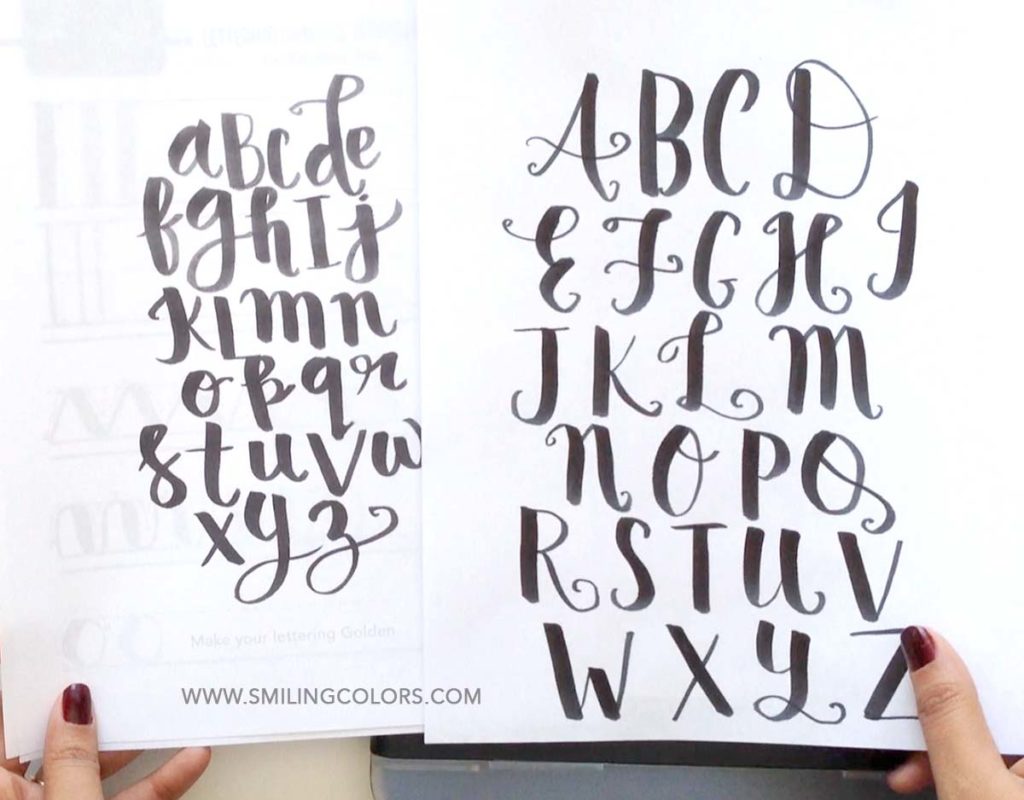 aBcde
fghIj
klmn
opqr
stuvw
xyz
Make your lettering Golden
WWW.SMILINGCOLORS.COM
ABCD
EFGHI
JKLM
NOPQ
RSTUV
WXYZ